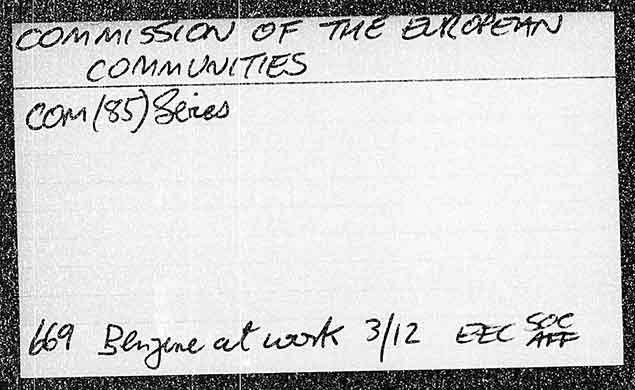 COMMISSION OF THE EUROPEAN
COMMUNITIES
COM (85) Series
669 Benzene at work 3/12 EEC SOC
AFF